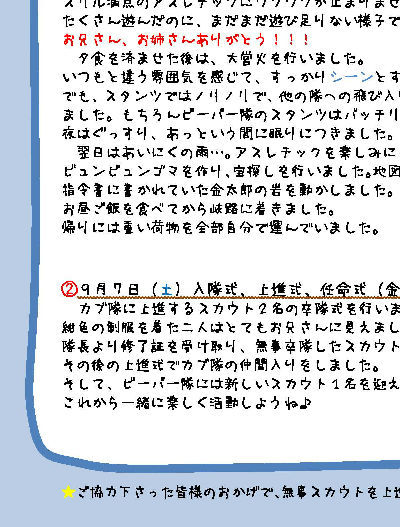 スリル満点のアスレチックにワクワクが止まりませ
たくさん遊んだのに、まだまだ遊び足りない様子で
お兄さん、お姉さんありがとう！！！
夕食を済ませた後は、大営火を行いました。
いつもと違う雰囲気を感じて、すっかりシーンとす
でも、スタンツではノリノリで、他の隊への飛び入り
ました。もちろんビーバー隊のスタンツはバッチリ
夜はぐっすり、あっという間に眠りにつきました。
翌日はあいにくの雨…。アスレチックを楽しみに
ビュンビュンゴマを作り、宝探しを行いました。地図
指令書に書かれていた金太郎の岩を動かしました。
お昼ご飯を食べてから岐路に着きました。
帰りには重い荷物を全部自分で運んでいました。
②９月７日（土）入隊式、上進式、任命式（金
カブ隊に上進するスカウト２名の卒隊式を行いま
紺色の制服を着た二人はとてもお兄さんに見えまし
隊長より修了証を受け取り、無事卒隊したスカウト
その後の上進式でカブ隊の仲間入りをしました。
そして、ビーバー隊には新しいスカウト１名を迎え
これから一緒に楽しく活動しようね♪
★ご協力下さった皆様のおかげで、無事スカウトを上進